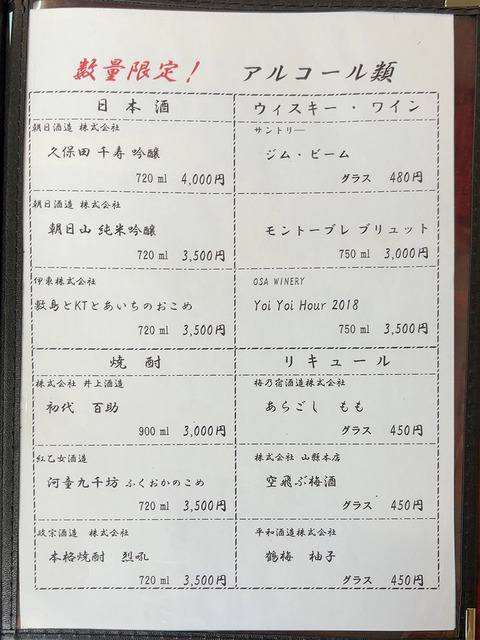 数量限定！ アルコール類
日本酒
朝日酒造 株式会社
久保田 千寿 吟醸
720 ml 4,000円
朝日酒造 株式会社
朝日山 純米吟醸
720 ml 3,500円
伊東株式会社
敷島とKTとあいちのおこめ
720 ml 3,500円
焼酎
株式会社 井上酒造
初代 百助
900 ml 3,000円
紅乙女酒造
河童九千坊 ふくおかのこめ
720 ml 3,500円
政宗酒造 株式会社
本格焼酎 烈吼
720 ml 3,500円
ウィスキー・ワイン
サントリー
ジム・ビーム
グラス 480円
モントーブレ ブリュット
750 ml 3,000円
OSA WINERY
Yoi Yoi Hour 2018
750 ml 3,500円
リキュール
梅乃宿酒造株式会社
あらごし もも
グラス 450円
株式会社 山縣本店
空飛ぶ梅酒
グラス 450円
平和酒造株式会社
鶴梅 柚子
グラス 450円